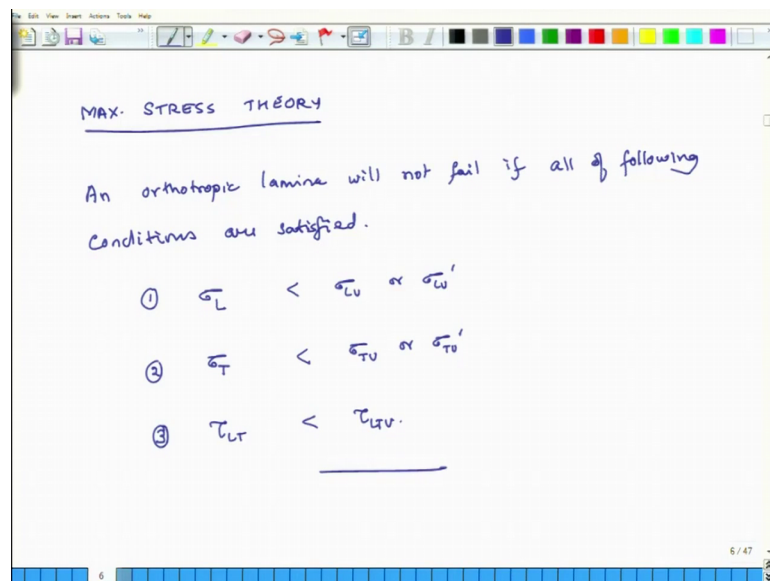 File Edit View Insert Actions Tools Help
B I
MAX. STRESS THEORY
An orthotropic lamina will not fail if all of following
Conditions are satisfied.
① σL < σLU or σLU'
② σT < σTU or σTU'
③ τLT < τLTU.
6 / 47
6